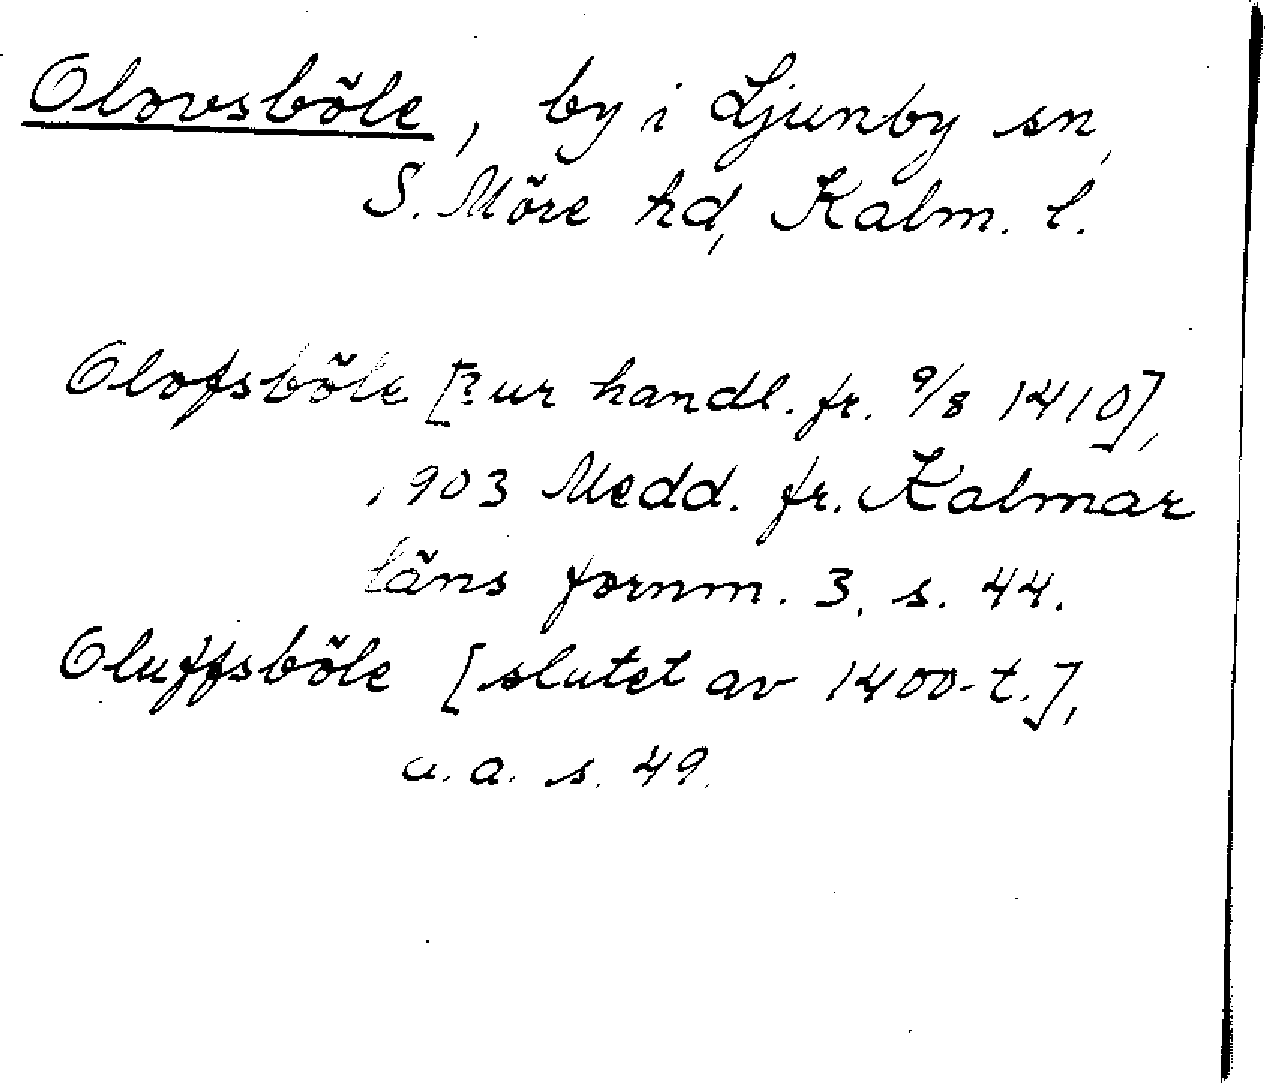 Olovsböle, by i Ljunby sn,
S. Möre hd, Kalm. l.
Olofsböle [? ur handl. fr. 9/8 1410],
1903 Medd. fr. Kalmar
läns fornm. 3, s. 44.
Oluffsböle [slutet av 1400-t.],
a. a. s. 49.